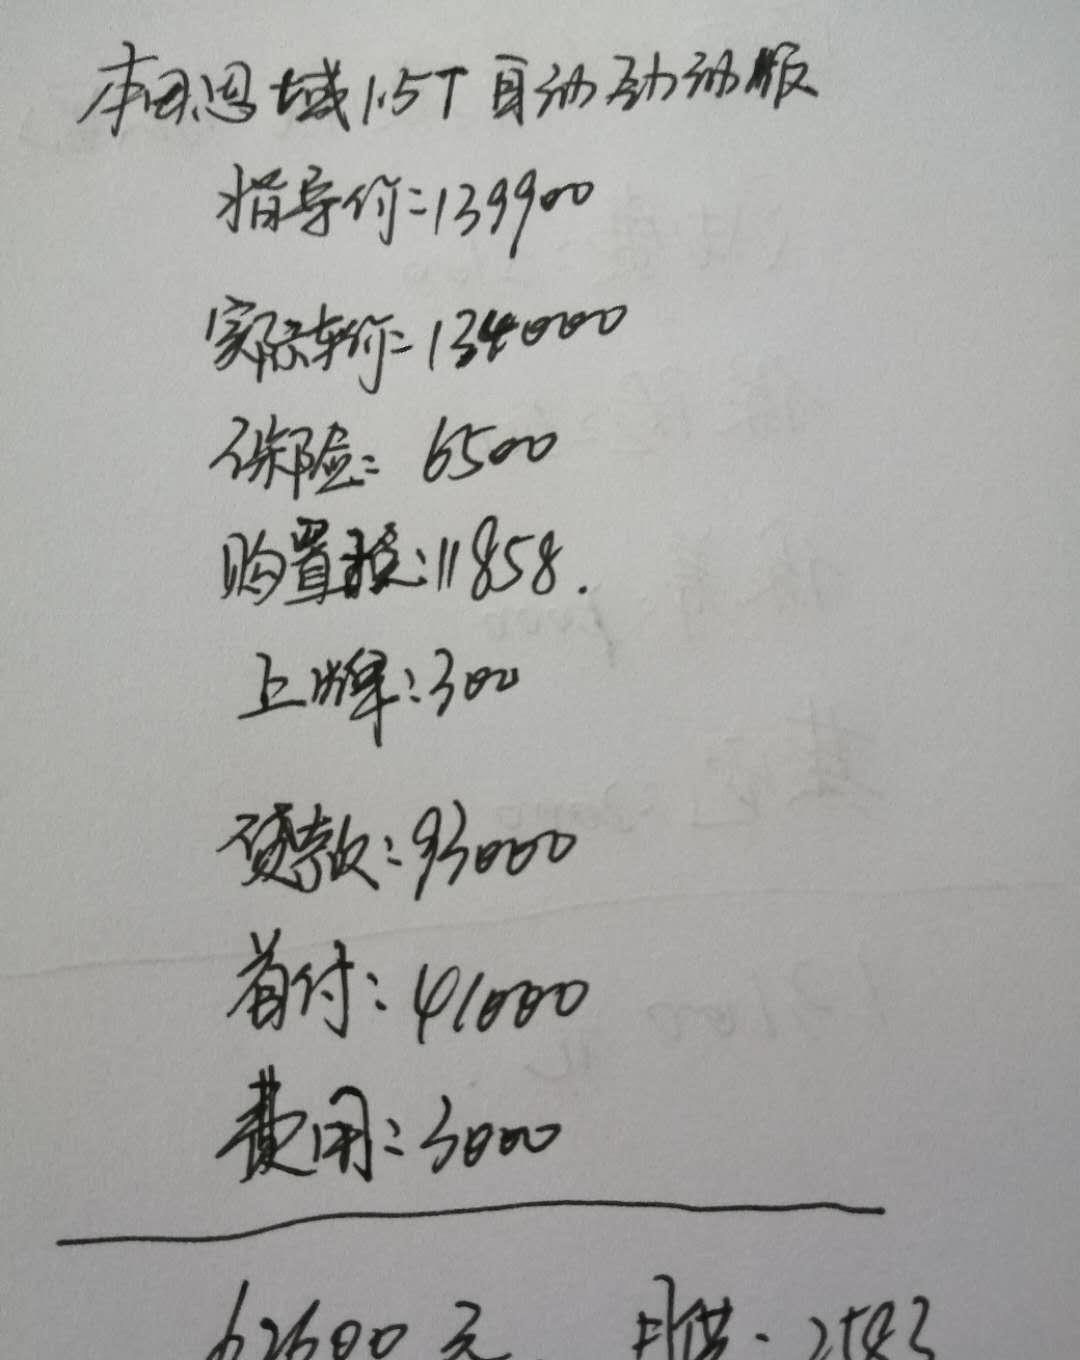 本田思域1.5T自动劲动版
指导价:139900
实际车价:134000
保险:6500
购置税:11858.
上牌:300
贷款:93000
首付:41000
费用:3000
62600元 月供:2583